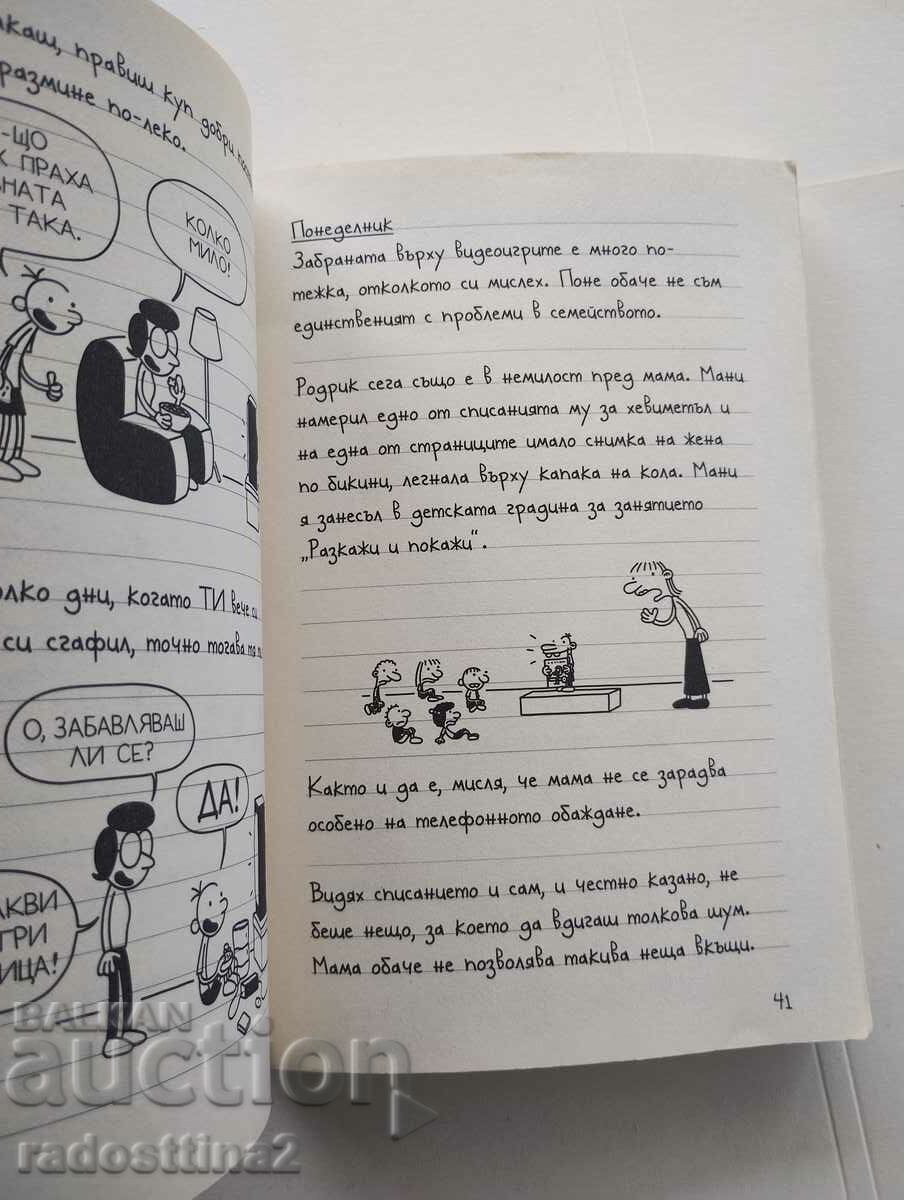 правиш куп добри
размине по-леко.
-ЩО
ПРАХА
ТАКА.
КОЛКО
МИЛО!
дни, когато ТИ вече си
си сгафил, точно тогава
О, ЗАБАВЛЯВАШ
ЛИ СЕ?
ДА!
Понеделник
Забраната върху видеоигрите е много по-
тежка, отколкото си мислех. Поне обаче не съм
единственият с проблеми в семейството.
Родрик сега също е в немилост пред мама. Мани
намерил едно от списанията му за хевиметъл и
на една от страниците имало снимка на жена
по бикини, легнала върху капака на кола. Мани
я занесъл в детската градина за занятието
„Разкажи и покажи“.
Както и да е, мисля, че мама не се зарадва
особено на телефонното обаждане.
Видях списанието и сам, и честно казано, не
беше нещо, за което да вдигаш толкова шум.
Мама обаче не позволява такива неща вкъщи.
41
BALKAN
auction
radosttina2